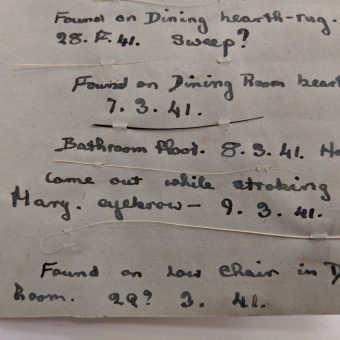 Found on Dining hearth-rug.
28. F. 41. Sweep?
Found on Dining Room heart
7. 3. 41.
Bathroom floor. 8. 3. 41. Ha
Came out while stroking
Mary. eyebrow - 9. 3. 41.
Found on Low Chair in D
Room. 29? 3. 41.